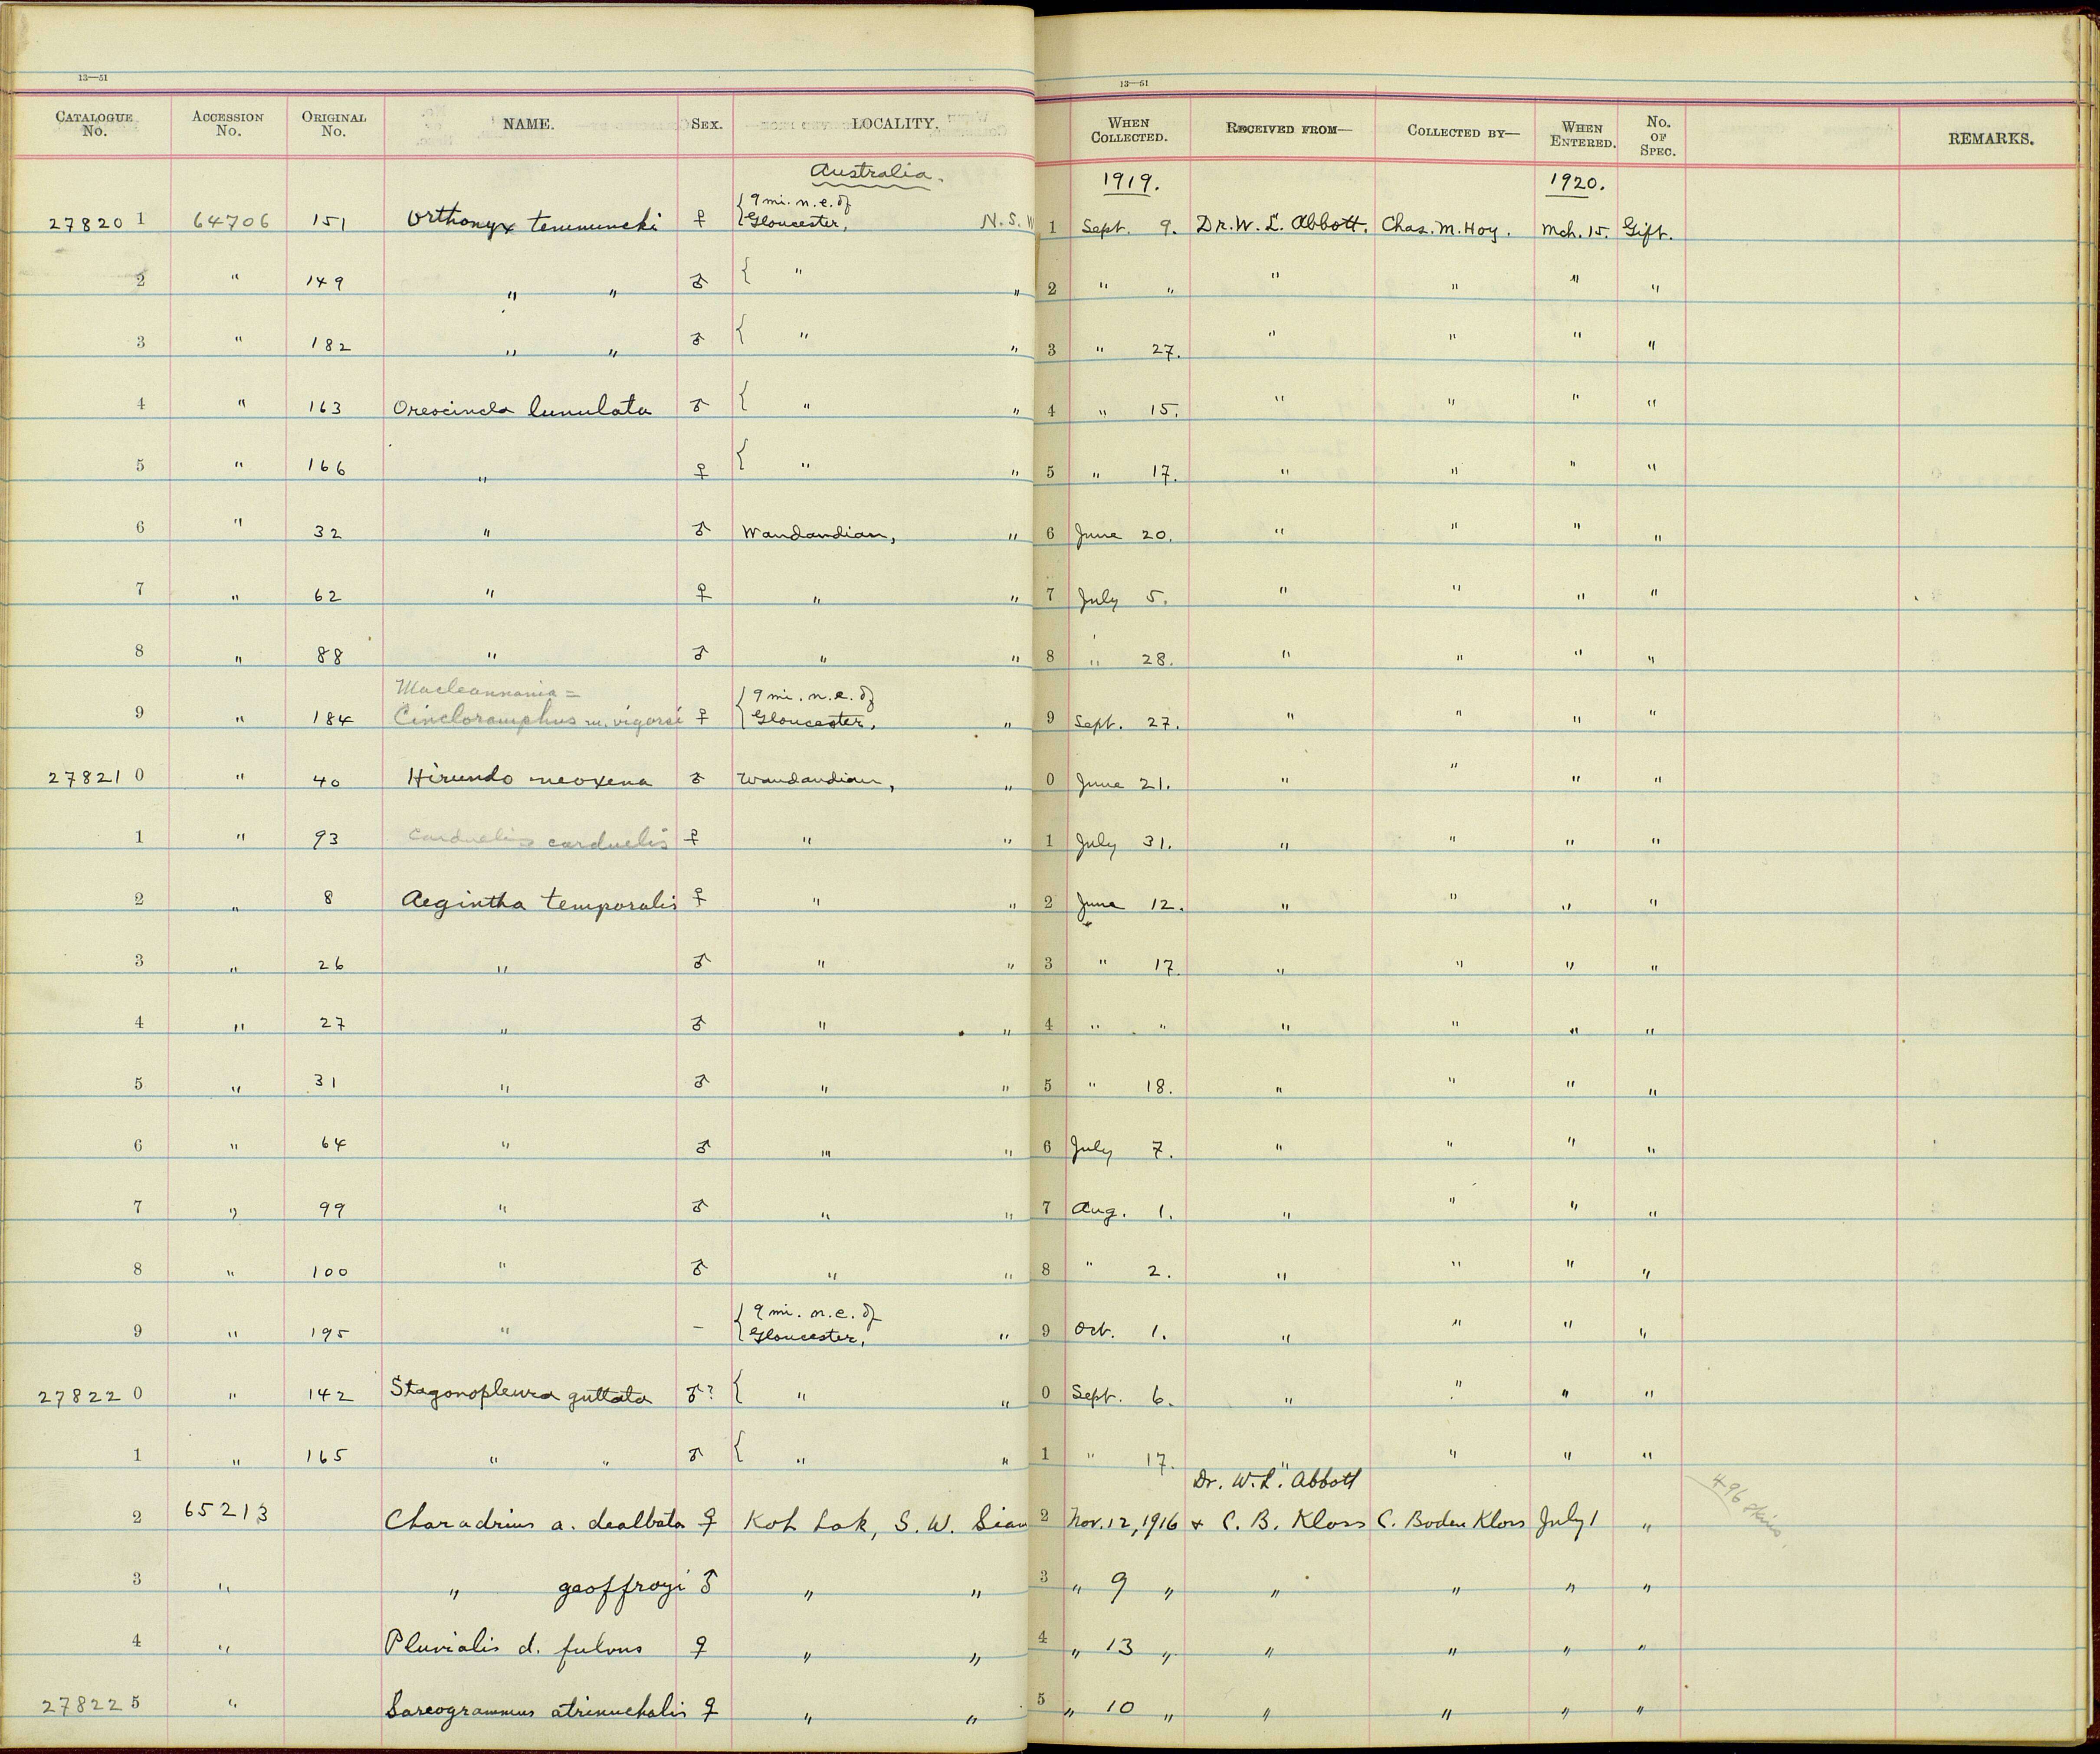 13—51 13—51
CATALOGUE No. ACCESSION No. ORIGINAL No. NAME. SEX. LOCALITY. WHEN COLLECTED. RECEIVED FROM— COLLECTED BY— WHEN ENTERED. No. OF SPEC. REMARKS.
Australia. 1919. 1920.
27820 1 64706 151 Orthonyx temmincki ♀ { 9 mi. n. e. of Gloucester, N. S. W 1 Sept. 9. Dr. W. L. Abbott. Chas. M. Hoy. Mch. 15. Gift.
2 " 149 " " ♂ { " " 2 " " " " " "
3 " 182 " " ♂ { " " 3 " 27. " " " "
4 " 163 Oreocincla lunulata ♂ { " " 4 " 15. " " " "
5 " 166 " ♀ { " " 5 " 17. " " " "
6 " 32 " ♂ Wandandian, " 6 June 20. " " " "
7 " 62 " ♀ " " 7 July 5. " " " "
8 " 88 " ♂ " " 8 " 28. " " " "
Maclennania =
9 " 184 Cincloramphus m. vigorsi ♀ { 9 mi. n. e. of Gloucester, " 9 Sept. 27. " " " "
27821 0 " 40 Hirundo neoxena ♂ Wandandian, " 0 June 21. " " " "
1 " 93 Carduelis carduelis ♀ " " 1 July 31. " " " "
2 " 8 Aegintha temporalis ♀ " " 2 June 12. " " " "
3 " 26 " ♂ " " 3 " 17. " " " "
4 " 27 " ♂ " " 4 " " " " " "
5 " 31 " ♂ " " 5 " 18. " " " "
6 " 64 " ♂ " " 6 July 7. " " " "
7 " 99 " ♂ " " 7 Aug. 1. " " " "
8 " 100 " ♂ " " 8 " 2. " " " "
9 " 195 " – { 9 mi. n. e. of Gloucester, " 9 Oct. 1. " " " "
27822 0 " 142 Stagonopleura guttata ♂? { " " 0 Sept. 6. " " " "
1 " 165 " " ♂ { " " 1 " 17. " " " "
Dr. W. L. Abbott
2 65213 Charadrius a. dealbata ♀ Koh Lak, S. W. Siam 2 Nov. 12, 1916 & C. B. Kloss C. Boden Kloss July 1 " 496 skins.
3 " " geoffroyi ♂ " " 3 " 9 " " " " "
4 " Pluvialis d. fulvus ♀ " " 4 " 13 " " " " "
27822 5 " Sarcogrammus atrinuchalis ♀ " " 5 " 10 " " " " "